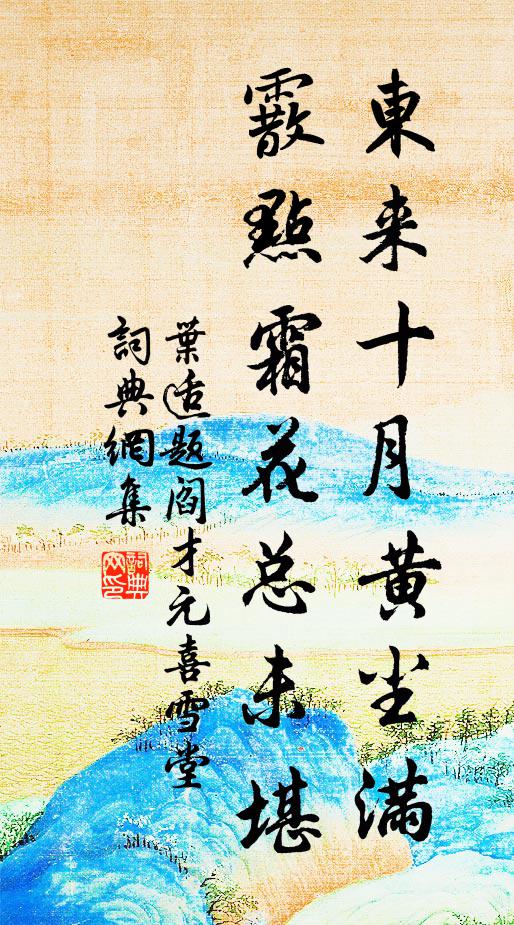 東来十月黄尘滿
霰點霜花总未堪
葉适题阎才元喜雪堂
詞典網集
詞典网印